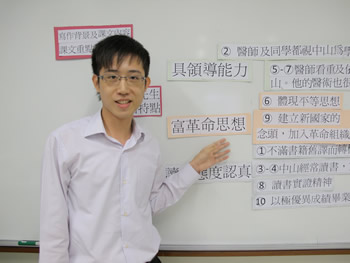 寫作背景及課文內容
課文重點
② 醫師及同學都視中山為
具領導能力
⑤-⑦醫師看重及
山。他的醫術也很
⑥ 體現平等思想
先生
特點
富革命思想
⑨ 建立新國家的
念頭，加入革命組織
①不滿書籍舊譯而轉
③-④中山經常讀書，
態度認真
⑧ 讀書實證精神
⑩ 以極優異成績畢業